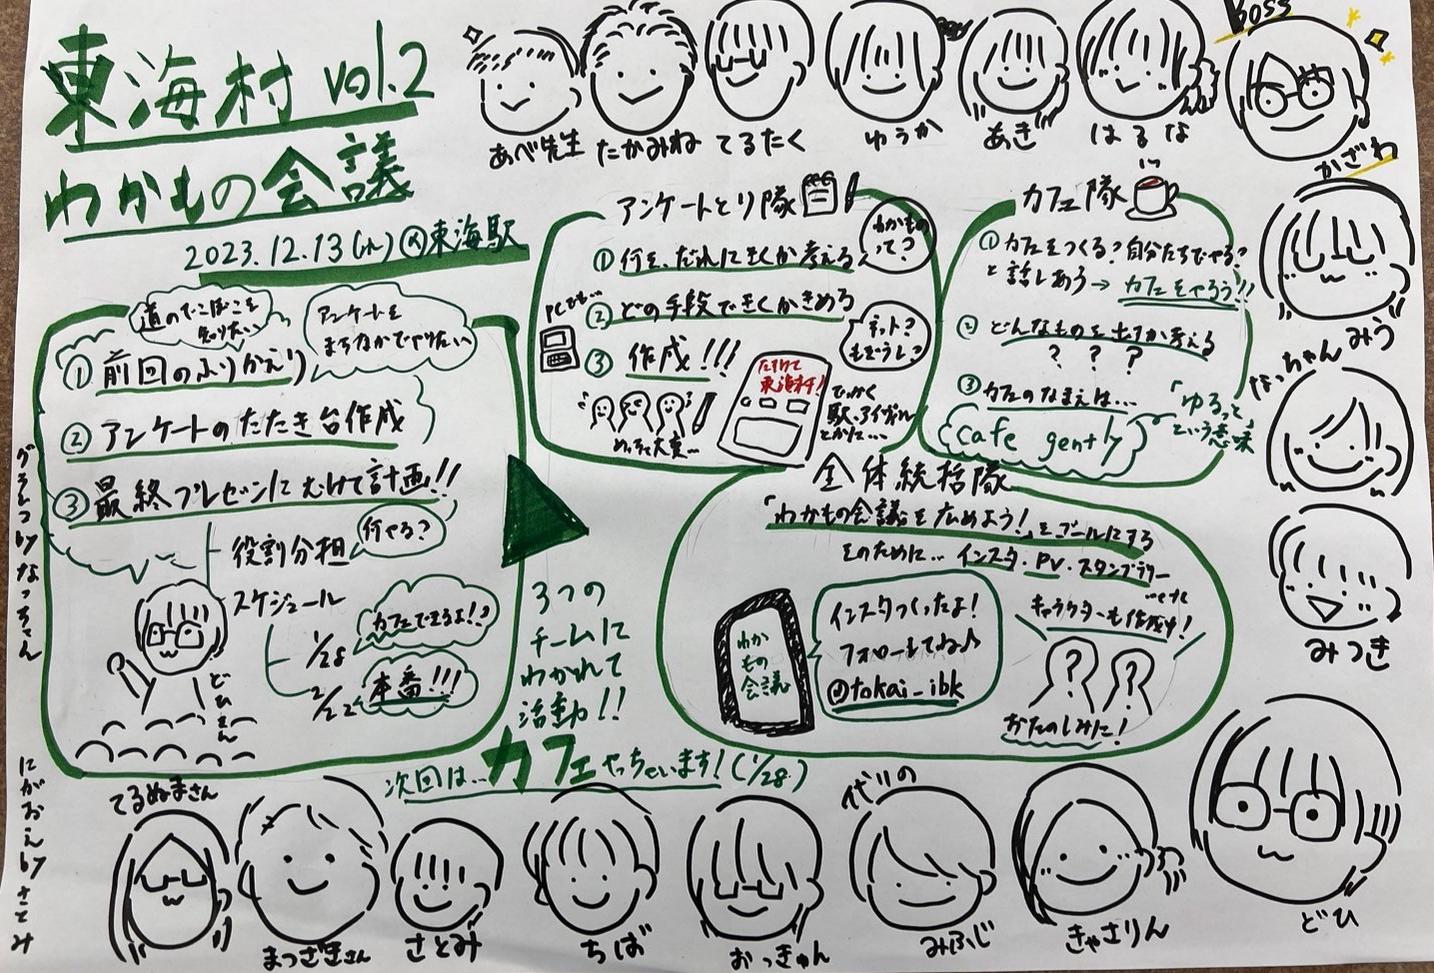 東海村 vol.2
わかもの会議
2023.12.13(水)@東海駅
あべ先生
たかみね
てるたく
ゆうか
あき
はるな
Boss
かざわ
みう
なっちゃん
みつき
どひ
道のでこぼこを
知りたい
アンケートを
まちなかでやりたい
① 前回のふりかえり
② アンケートのたたき台作成
③ 最終プレゼンにむけて計画!!
役割分担
何やる?
スケジュール
1/28
カフェできるよ!?
2/22
本番!!!
どひさん
3つの
チームに
わかれて
活動!!
アンケートとり隊
わかもの
って?
① 何を、だれにきくか考える
② どの手段できくかきめる
PCでも…
ネット?
③ 作成!!!
たすけて
東海村!
めっちゃ大変…
せっかく
駅、アイヴィル
とかに…
カフェ隊
① カフェをつくる?自分たちでやる?
と話しあう→カフェをやろう!!
② どんなものを出すか考える
? ? ?
③ カフェのなまえは…
cafe gently
「ゆるっと
という意味
全体統括隊
「わかもの会議を広めよう!」をゴールにする
そのために… インスタ・PV・スタンプラリー
わか
もの
会議
インスタつくったよ!
フォローしてね♪
@tokai_ibk
キャラクターも作成中!
? ?
おたのしみに!
次回は…カフェやっちゃいます!(1/28)
てるぬまさん
まつざきさん
さとみ
ちば
おっきゅん
代リの
みふじ
きゃさりん
グラレコbyなっちゃん
にがおえbyさとみ